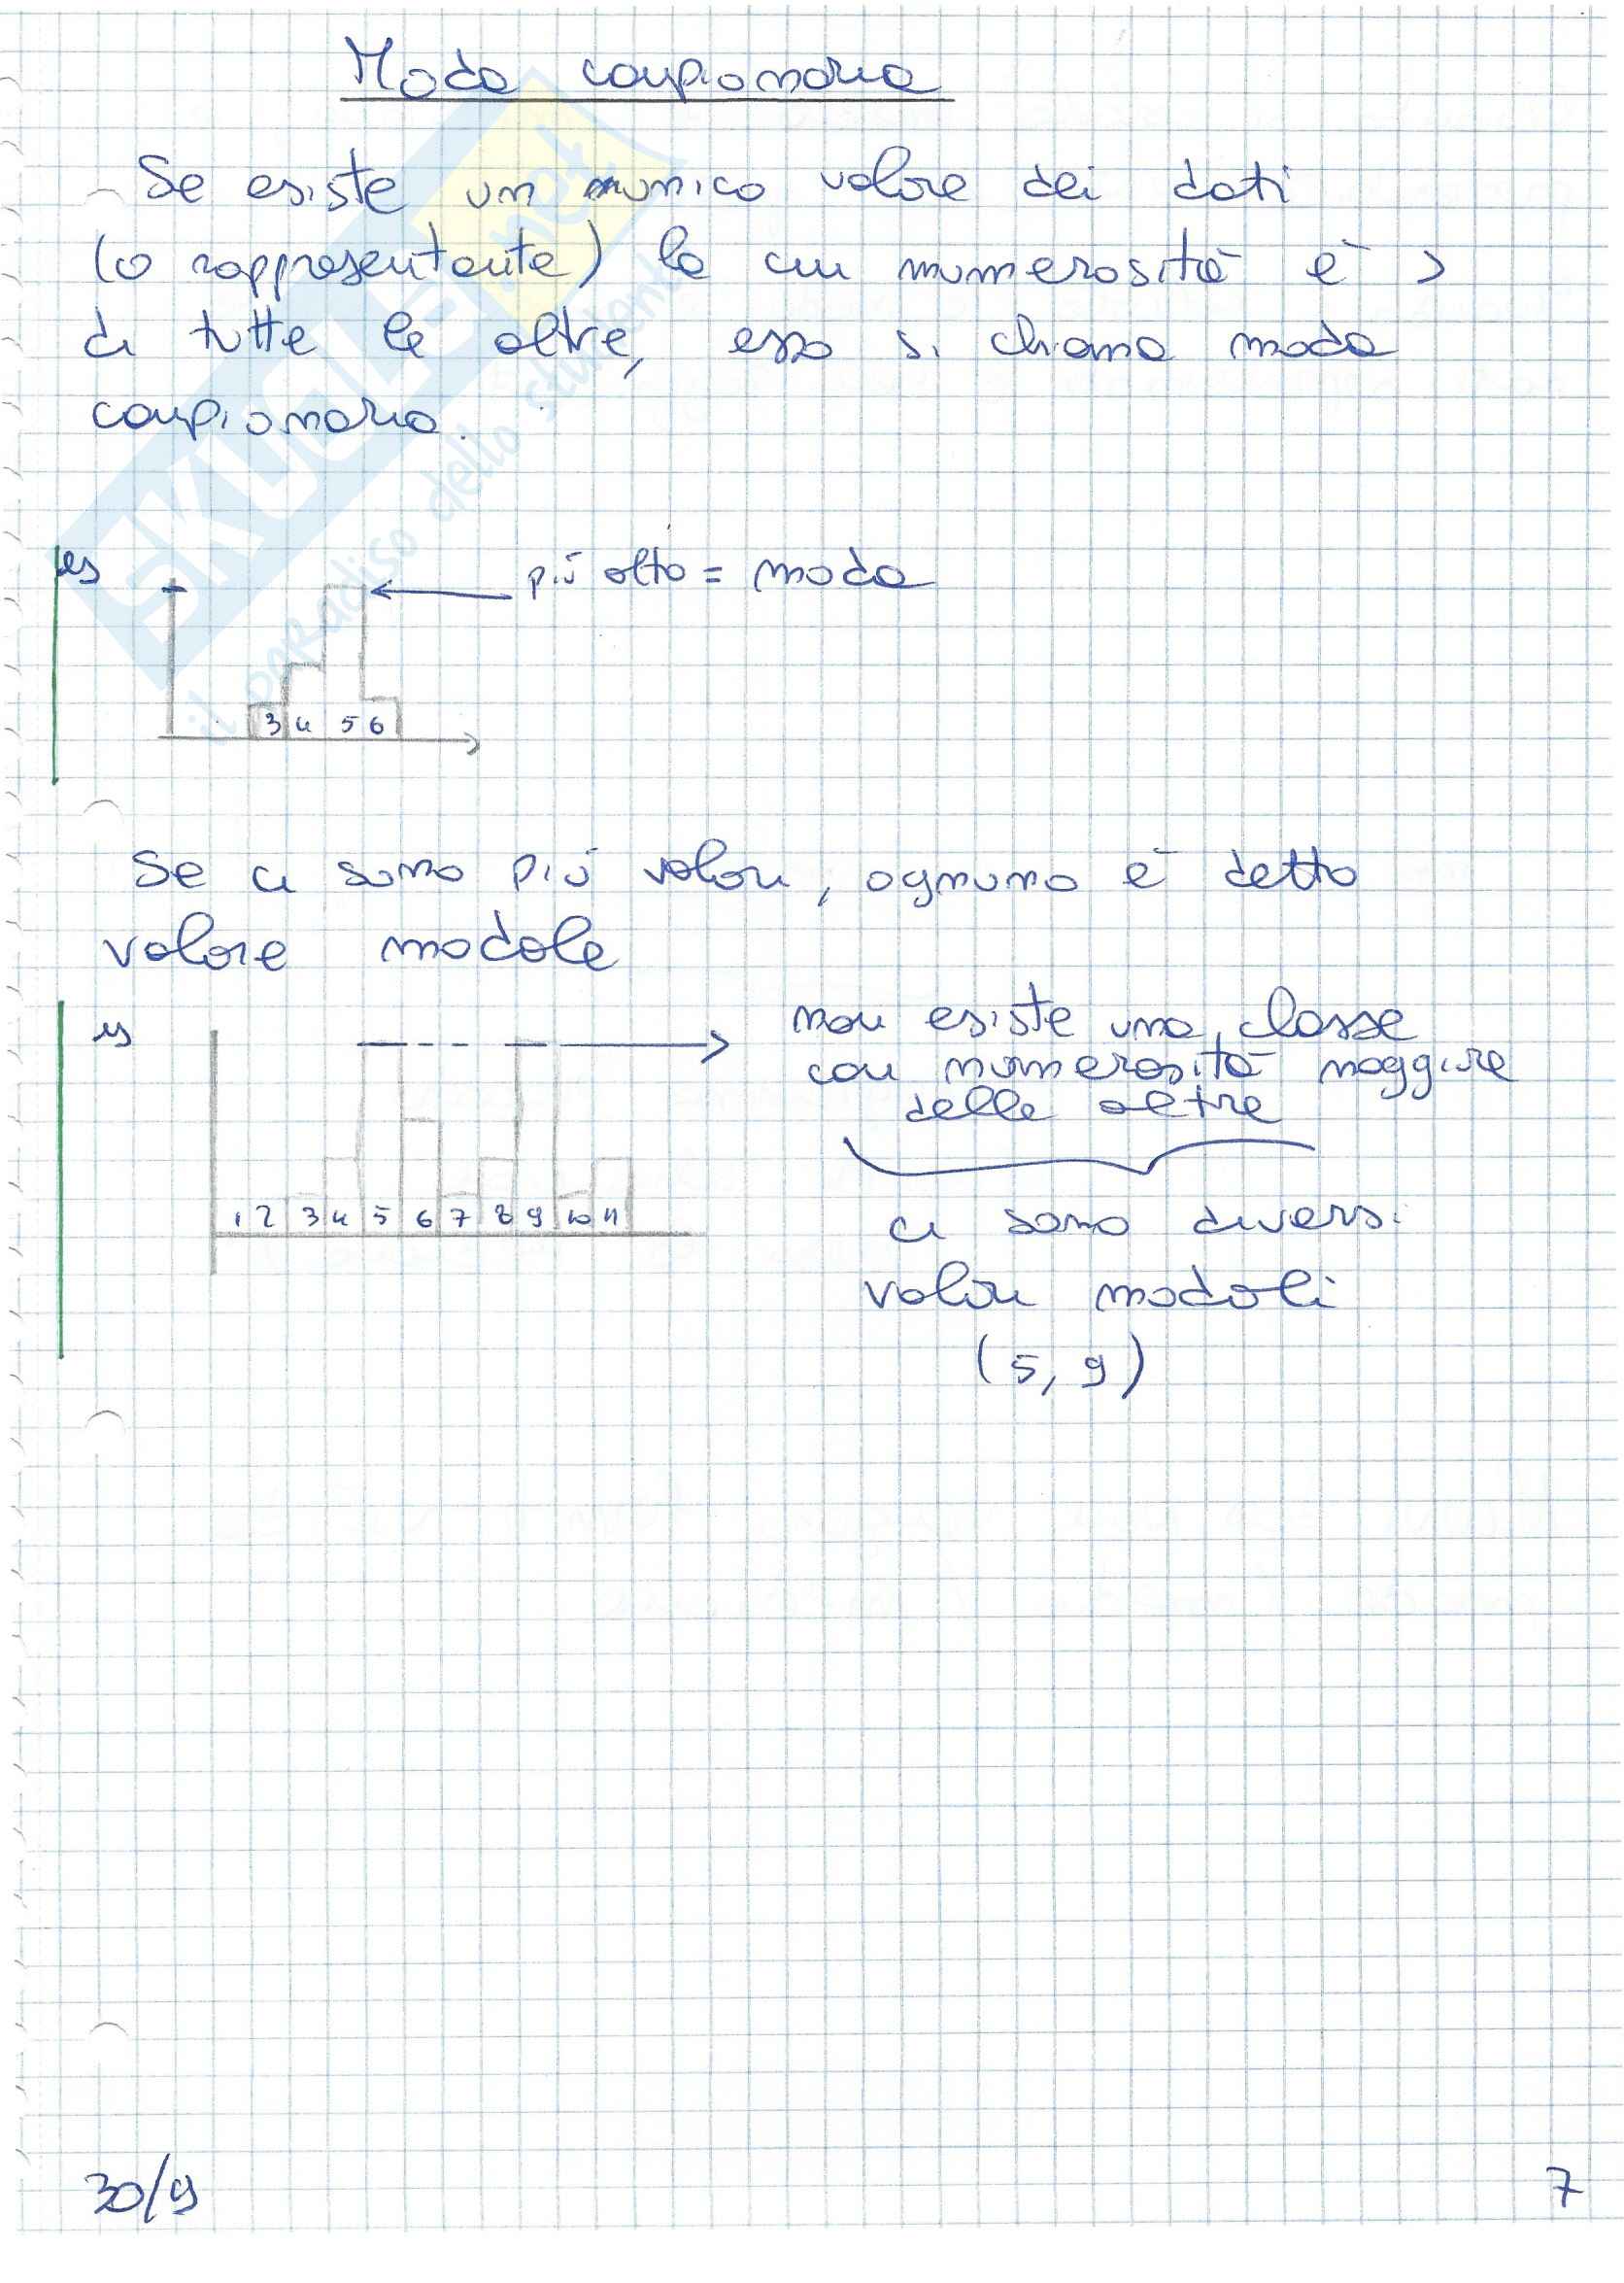 Moda campionaria
Se esiste un unico valore dei dati
(o rappresentante) la cui numerosità è >
di tutte le altre, esso si chiama moda
campionaria.
es
più alto = moda
3 4 5 6
Se ci sono più valori, ognuno è detto
valore modale
es
non esiste una classe
con numerosità maggiore
delle altre
1 2 3 4 5 6 7 8 9 10 11
ci sono diversi
valori modali
(5, 9)
30/9
7
SKUOLA.net
il paradiso dello studente